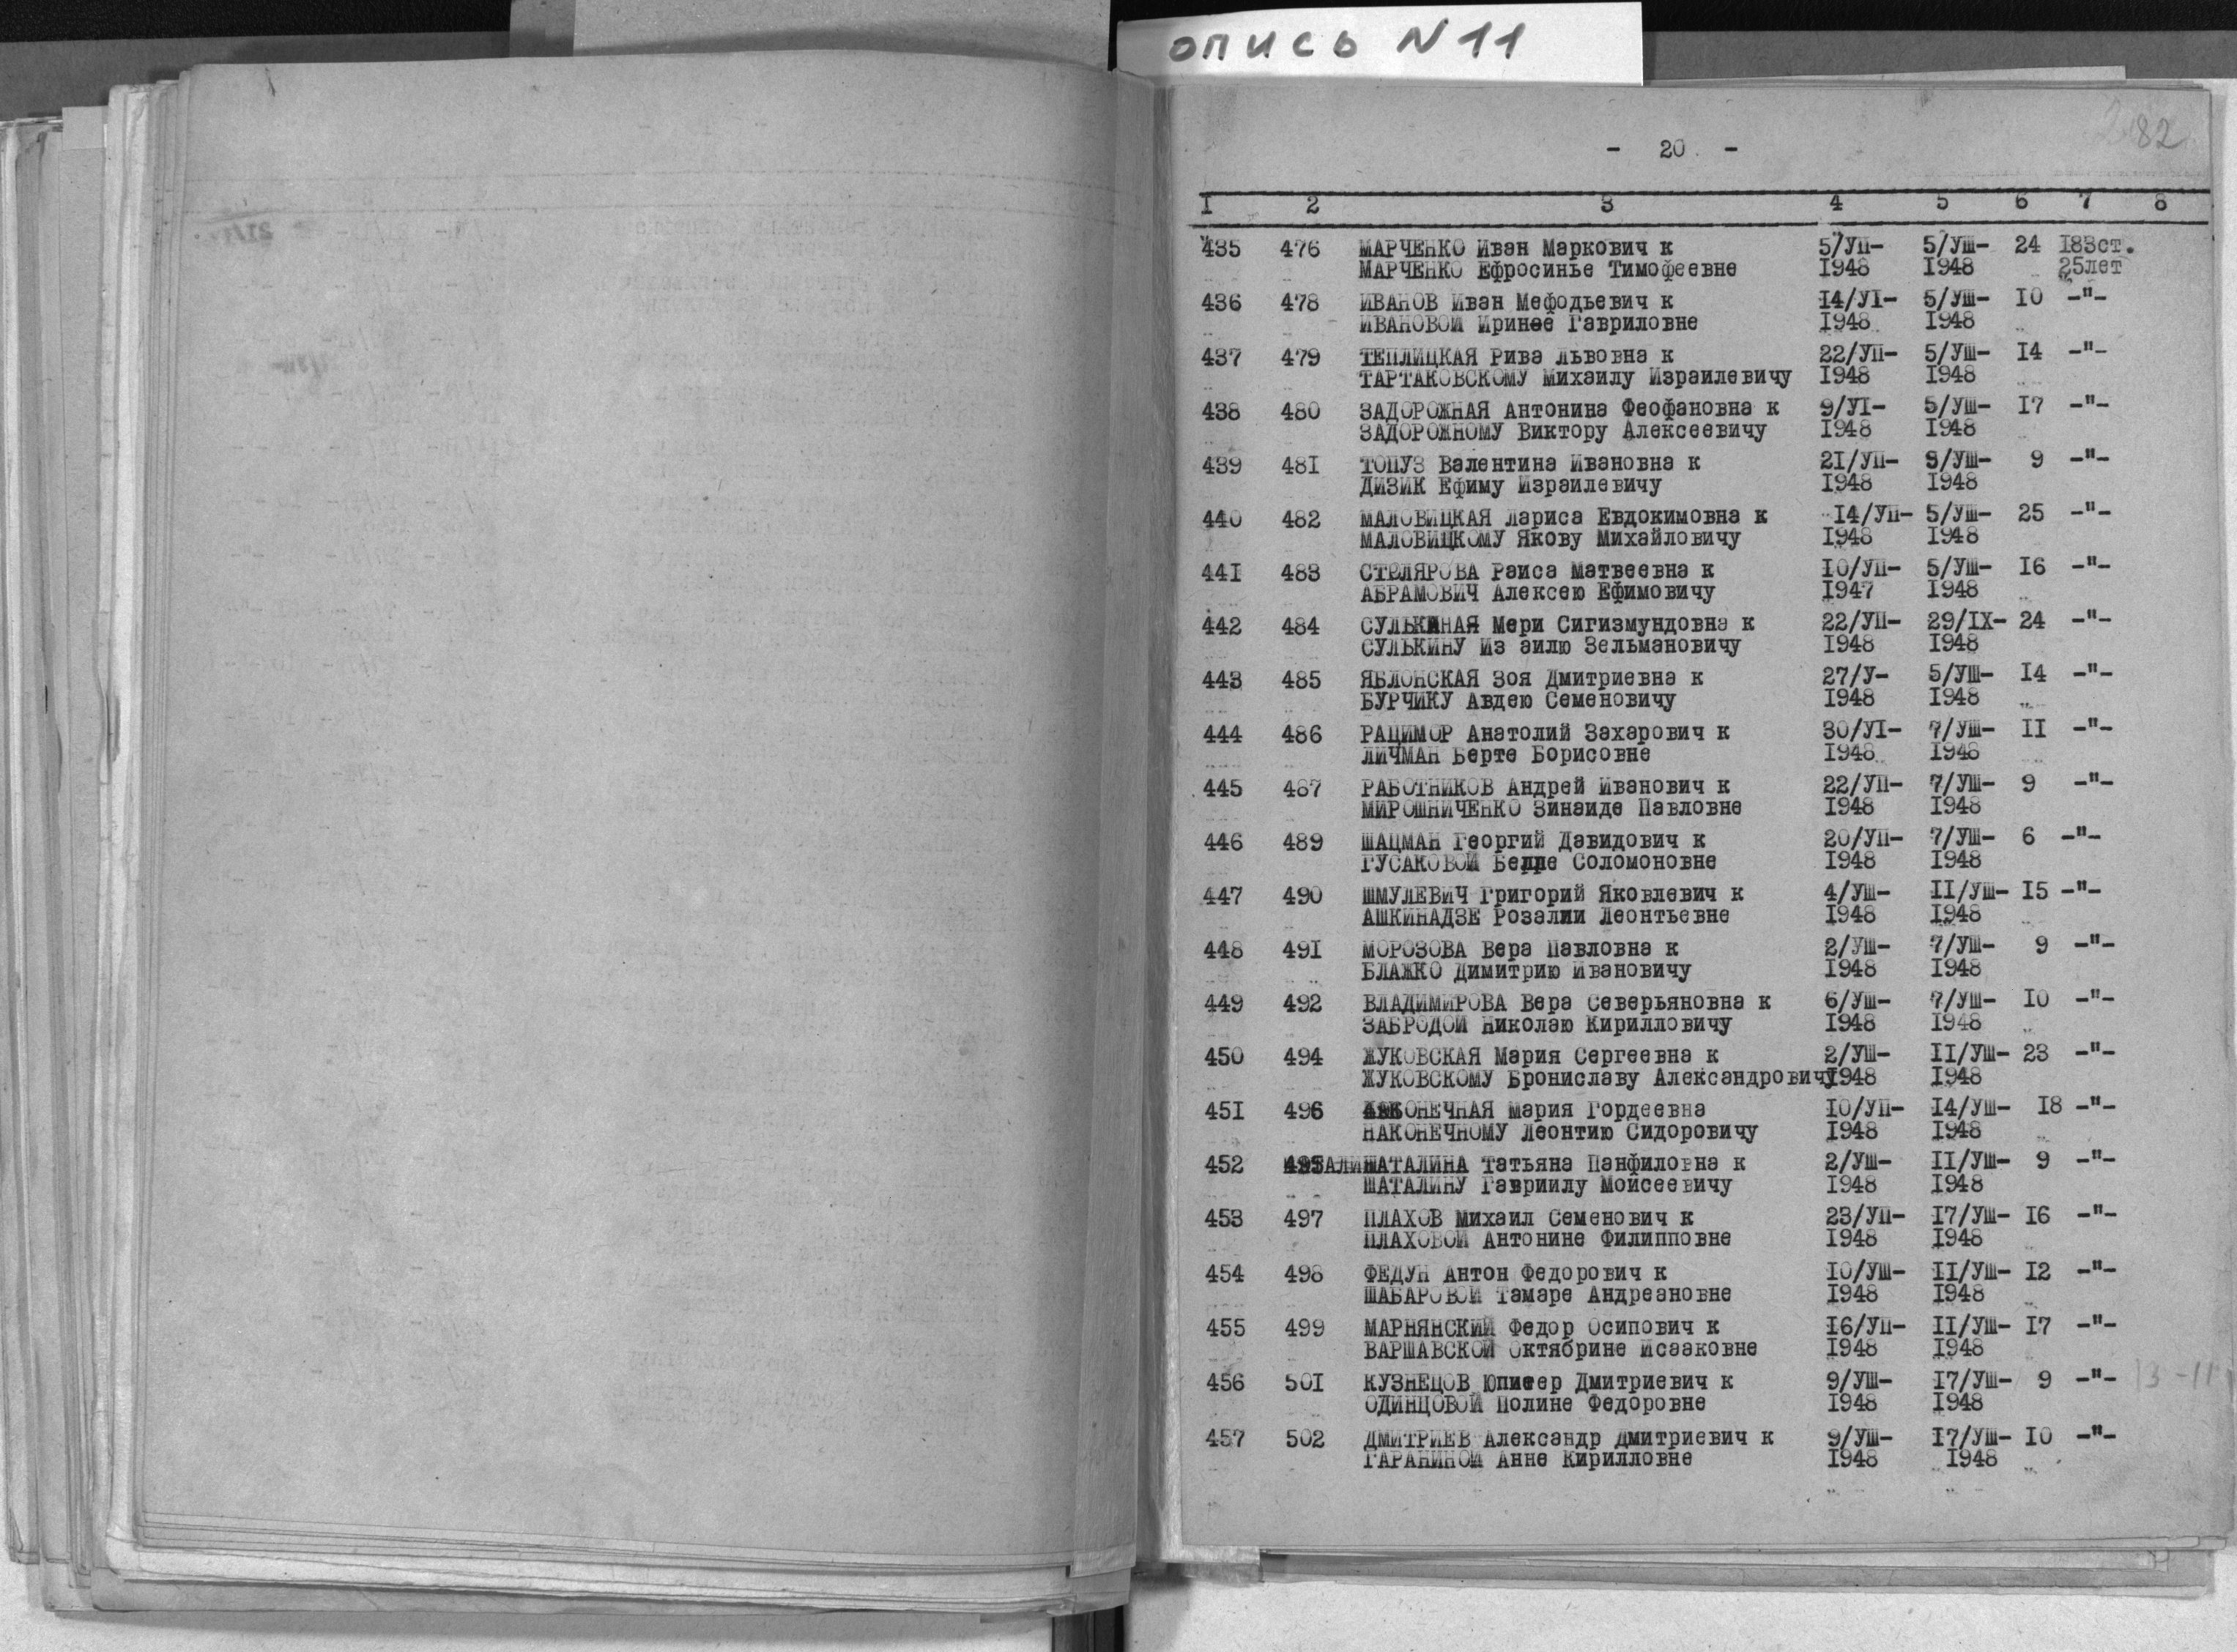 опись N 11
82
- 20. -
1 2 3 4 5 6 7 8
435 476 МАРЧЕНКО Иван Маркович к 5/УП- 5/УШ- 24 183ст.
МАРЧЕНКО Ефросинье Тимофеевне 1948 1948 25лет
436 478 ИВАНОВ Иван Мефодьевич к 14/У1- 5/УШ- 10 -"-
ИВАНОВОЙ Иринее Гавриловне 1948 1948
437 479 ТЕПЛИЦКАЯ Рива Львовна к 22/УП- 5/УШ- 14 -"-
ТАРТАКОВСКОМУ Михаилу Израилевичу 1948 1948
438 480 ЗАДОРОЖНАЯ Антонина Феофановна к 9/У1- 5/УШ- 17 -"-
ЗАДОРОЖНОМУ Виктору Алексеевичу 1948 1948
439 481 ТОПУЗ Валентина Ивановна к 21/УП- 9/УШ- 9 -"-
ДИЗИК Ефиму Израилевичу 1948 1948
440 482 МАЛОВИЦКАЯ Лариса Евдокимовна к 14/УП- 5/УШ- 25 -"-
МАЛОВИЦКОМУ Якову Михайловичу 1948 1948
441 483 СТОЛЯРОВА Раиса Матвеевна к 10/УП- 5/УШ- 16 -"-
АБРАМОВИЧ Алексею Ефимовичу 1947 1948
442 484 СУЛЬКИНАЯ Мери Сигизмундовна к 22/УП- 29/IX- 24 -"-
СУЛЬКИНУ Из аилю Зельмановичу 1948 1948
443 485 ЯБЛОНСКАЯ Зоя Дмитриевна к 27/У- 5/УШ- 14 -"-
БУРЧИКУ Авдею Семеновичу 1948 1948
444 486 РАЦИМОР Анатолий Захарович к 30/У1- 7/УШ- 11 -"-
ЛИЧМАН Берте Борисовне 1948 1948
445 487 РАБОТНИКОВ Андрей Иванович к 22/УП- 7/УШ- 9 -"-
МИРОШНИЧЕНКО Зинаиде Павловне 1948 1948
446 489 ШАЦМАН Георгий Давидович к 20/УП- 7/УШ- 6 -"-
ГУСАКОВОЙ Белле Соломоновне 1948 1948
447 490 ШМУЛЕВИЧ Григорий Яковлевич к 4/УШ- 11/УШ- 15 -"-
АШКИНАДЗЕ Розалии Леонтьевне 1948 1948
448 491 МОРОЗОВА Вера Павловна к 2/УШ- 7/УШ- 9 -"-
БЛАЖКО Димитрию Ивановичу 1948 1948
449 492 ВЛАДИМИРОВА Вера Северьяновна к 6/УШ- 7/УШ- 10 -"-
ЗАБРОДОЙ Николаю Кирилловичу 1948 1948
450 494 ЖУКОВСКАЯ Мария Сергеевна к 2/УШ- 11/УШ- 23 -"-
ЖУКОВСКОМУ Брониславу Александровичу 1948 1948
451 496 НАКОНЕЧНАЯ Мария Гордеевна 10/УП- 14/УШ- 18 -"-
НАКОНЕЧНОМУ Леонтию Сидоровичу 1948 1948
452 495 ШАТАЛИНА Татьяна Панфиловна к 2/УШ- 11/УШ- 9 -"-
ШАТАЛИНУ Гавриилу Мойсеевичу 1948 1948
453 497 ПЛАХОВ Михаил Семенович к 23/УП- 17/УШ- 16 -"-
ПЛАХОВОЙ Антонине Филипповне 1948 1948
454 498 ФЕДУН Антон Федорович к 10/УШ- 11/УШ- 12 -"-
ШАБАРОВОЙ Тамаре Андреановне 1948 1948
455 499 МАРНЯНСКИЙ Федор Осипович к 16/УП- 11/УШ- 17 -"-
ВАРШАВСКОЙ Октябрине Исааковне 1948 1948
456 501 КУЗНЕЦОВ Юпитер Дмитриевич к 9/УШ- 17/УШ- 9 -"-
ОДИНЦОВОЙ Полине Федоровне 1948 1948
457 502 ДМИТРИЕВ Александр Дмитриевич к 9/УШ- 17/УШ- 10 -"-
ГАРАНИНОЙ Анне Кирилловне 1948 1948